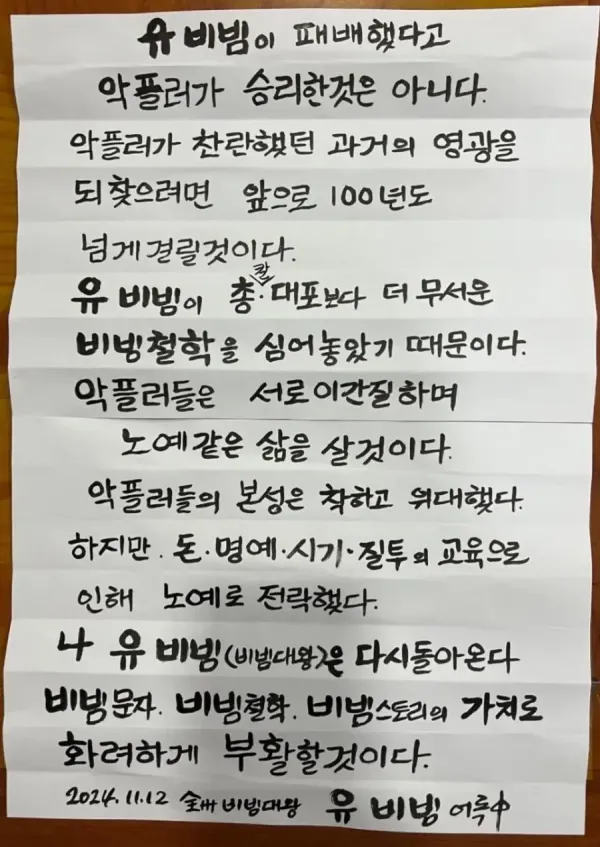 유비빔이 패배했다고
악플러가 승리한것은 아니다.
악플러가 찬란했던 과거의 영광을
되찾으려면 앞으로 100년도
넘게 걸릴것이다.
유비빔이 총·칼·대포보다 더 무서운
비빙철학을 심어놓았기 때문이다.
악플러들은 서로이간질하며
노예같은 삶을 살것이다.
악플러들의 본성은 착하고 위대했다.
하지만. 돈·명예·시기·질투의 교육으로
인해 노예로 전락했다.
나 유비빔(비빔대왕)은 다시돌아온다
비빔문자. 비빔철학. 비빔스토리의 가치로
화려하게 부활할것이다.
2024.11.12 全州 비빔대왕 유비빔